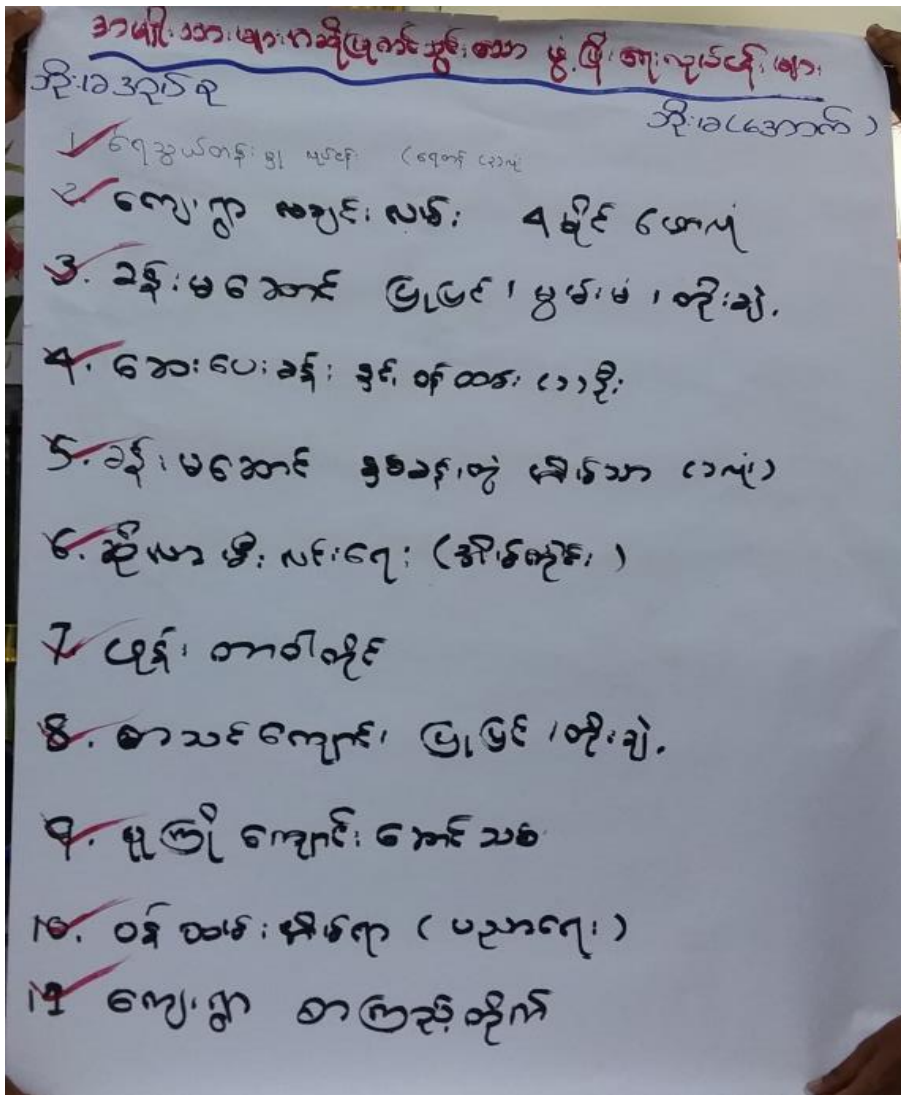 အမျိုးသားများကဆိုပြုတင်သွင်းသော ဖွံ့ဖြိုးရေးလုပ်ငန်းများ
ဘိုးခအုပ်စု
ဘိုးခ(အောက်)
1. ရေသွယ်တန်းမှု လုပ်ငန်း (ရေတန်
2. ကျေးရွာ ချင်းလမ်း 4 မိုင် ဖာလုံ
3. ခန်းမဆောင် ပြုပြင်၊ မွမ်းမံ၊ တိုးချဲ့.
4. ဆေးပေးခန်း နှင့် ဝန်ထမ်း (၁)ဦး
5. ခန်းမဆောင် နှစ်ခန်းတွဲ အိမ်သာ (၁လုံး)
6. ဆိုလာ မီးလင်းရေး (အိမ်တိုင်း)
7. ဖုန်း တာဝါတိုင်
8. စာသင်ကျောင်း ပြုပြင်၊ တိုးချဲ့.
9. မူကြိုကျောင်း ဆောင်သစ်
10. ဝန်ထမ်းအိမ်ရာ (ပညာရေး)
11 ကျေးရွာ စာကြည့်တိုက်